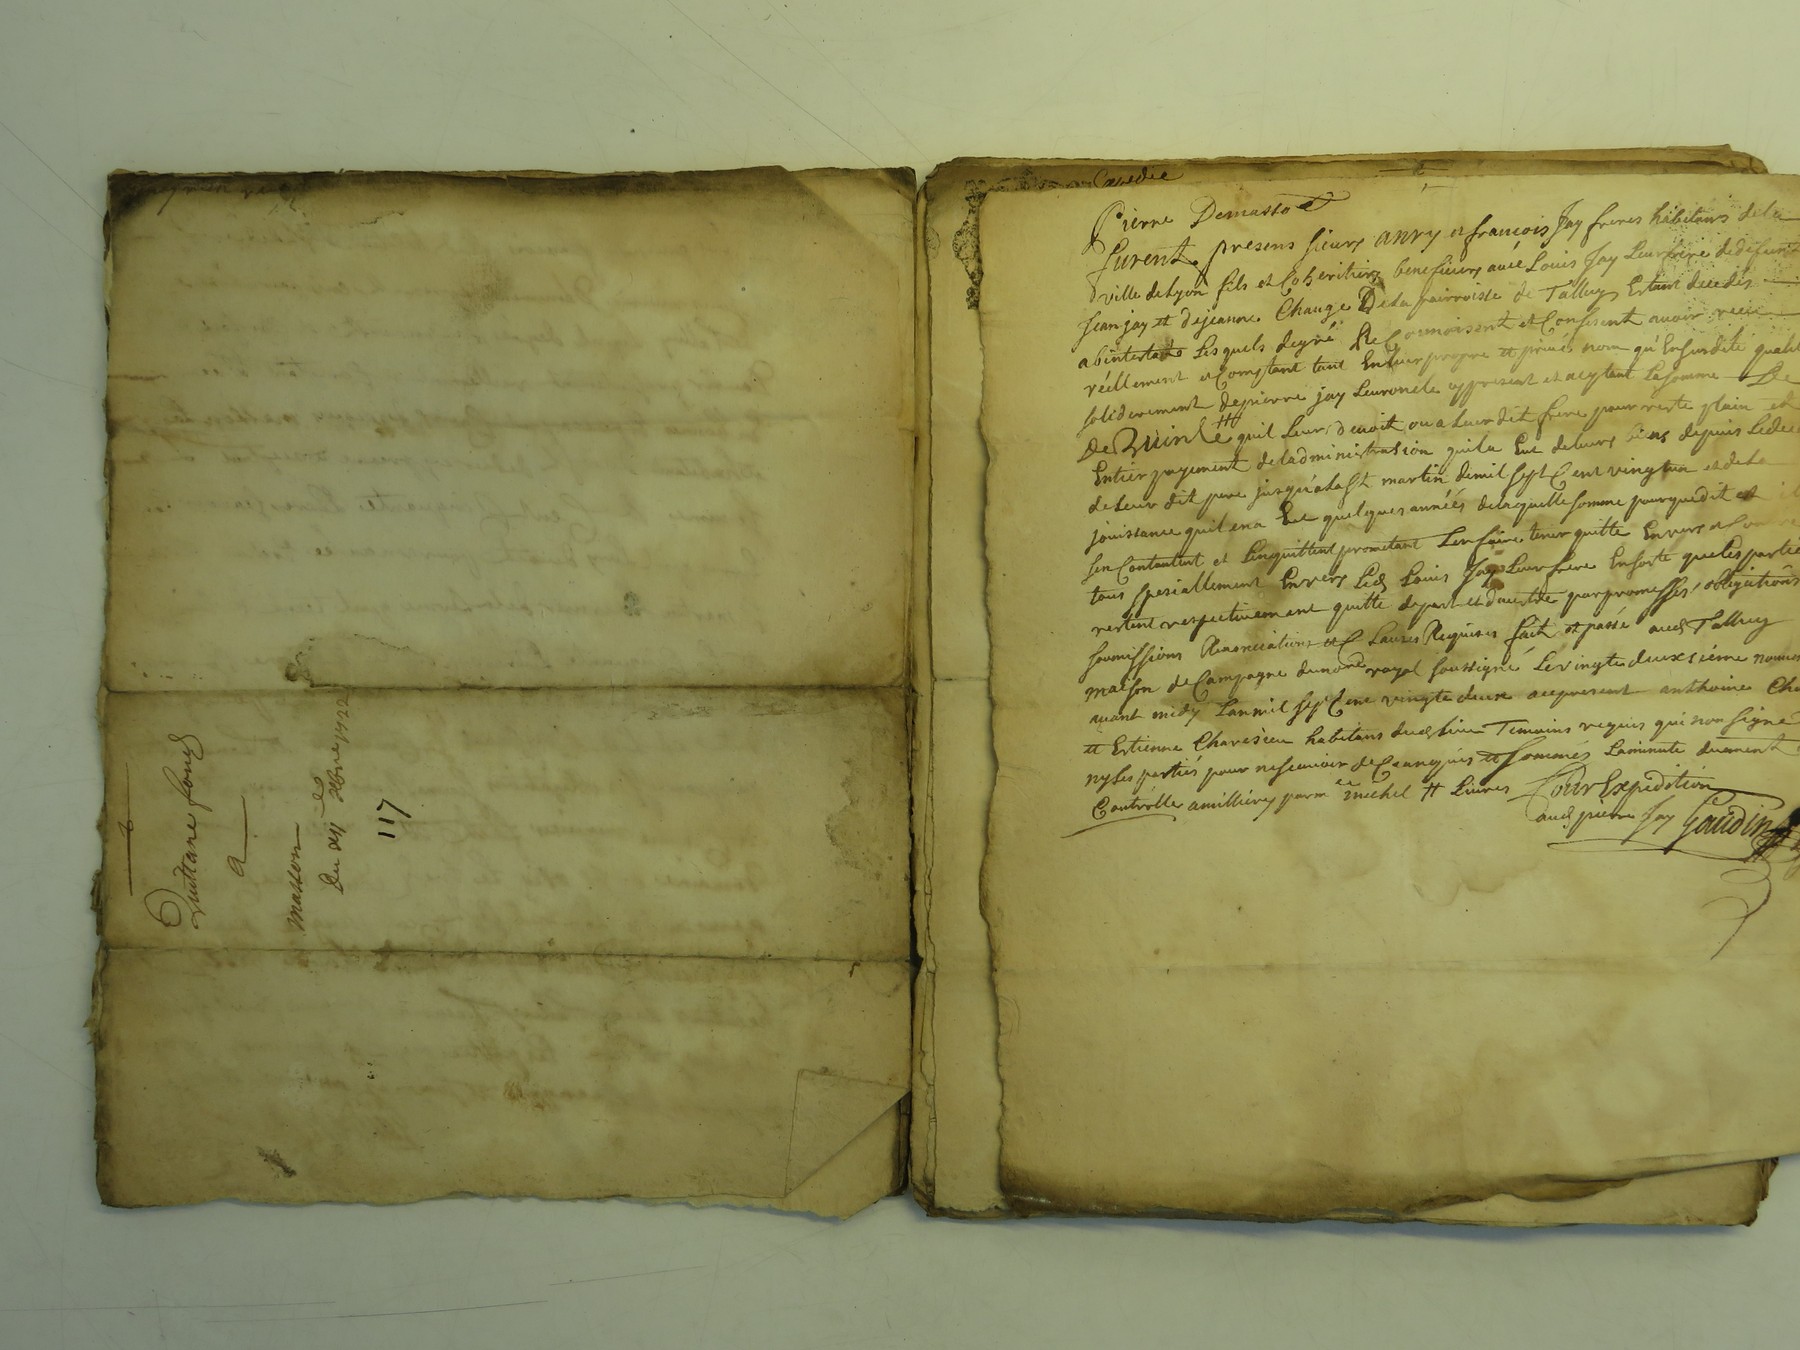 Quittane
a
masson
117
Pierre Demasso
furent presens sieurs anry et francois Jay freres habitans de la
ville de Lyon fils et Coheritiers beneficiers avec Louis Jay Leur frere de defunt
Jean jay et de jeanne Change De la parroisse de Talluy Estant decedés
abintestats Lesquels de gré Reconnoissent et Confessent avoir receu
réellement et Comptant tant En leur propre et privés nom qu'En susdite qualité
solidérement de pierre jay Leur oncle appresent et aceptant La somme De
De quil Leur devoit ou a Leur dit frere pour reste plain et
Entier payement de ladministrasion quil a Eue de leurs biens depuis Le deces
de Leur dit pere jusqu'a la St martin de mil sept Cent vingt un et de la
jouissance quil en a Eue quelques années de laquelle somme pour que dit est il
sen Contentent et Lenquittent prometant Len faire tenir quitte Envers et Contre
tous spesiallement Envers Led Louis Jay Leur frere En sorte que les partie
restent respectivement quitte de part et dautre par promesses obligations
soumissions Renonciations et Clauses Requises fait et passé aud Talluy
maison de Campagne du no.re royal soussigné Le vingt deuxsiéme
avant midy Lan mil sept Cent vingt deux acepresent anthoine
et Estienne habitans dud Lieu Temoins requis qui non signé
ny les partiés pour ne scavoir de Ce enquis et sommés La minute duement
Contrôllé a millery par m michel Livres Pour Expedition
aud pierre Jay Gaudin